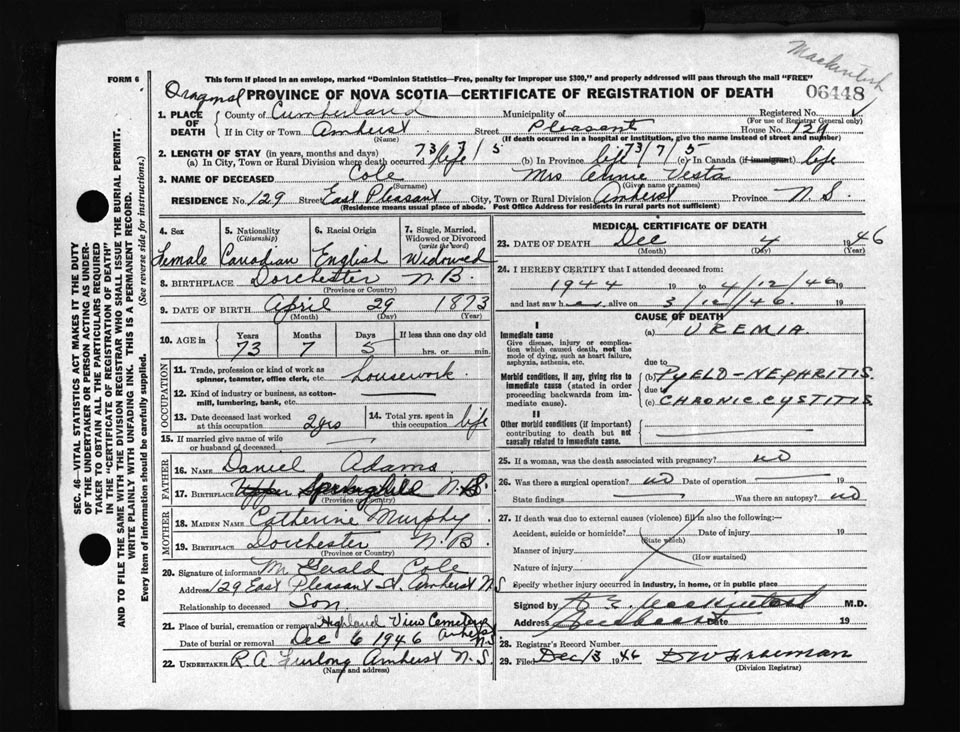 Mackintosh
FORM 6
This form if placed in an envelope, marked "Dominion Statistics—Free, penalty for improper use $300," and properly addressed will pass through the mail "FREE"
06448
PROVINCE OF NOVA SCOTIA—CERTIFICATE OF REGISTRATION OF DEATH
1. PLACE OF DEATH { County of Cumberland Municipality of Registered No.
(For use of Registrar General only)
If in City or Town Amherst Street Pleasant House No. 129
(Name) (If death occurred in a hospital or institution, give the name instead of street and number)
2. LENGTH OF STAY (in years, months and days) 73/7/5
(a) In City, Town or Rural Division where death occurred life (b) In Province life 73/7/5 (c) In Canada (if immigrant) life
3. NAME OF DECEASED Cole Mrs Annie Vesta
(Surname) (Given name or names)
RESIDENCE No. 129 Street East Pleasant City, Town or Rural Division Amherst Province N.S.
(Residence means usual place of abode. Post Office Address for residents in rural parts not sufficient)
SEC. 46—VITAL STATISTICS ACT MAKES IT THE DUTY
OF THE UNDERTAKER OR PERSON ACTING AS UNDER-
TAKER TO OBTAIN ALL THE PARTICULARS REQUIRED
IN THE "CERTIFICATE OF REGISTRATION OF DEATH"
AND TO FILE THE SAME WITH THE DIVISION REGISTRAR WHO SHALL ISSUE THE BURIAL PERMIT.
WRITE PLAINLY WITH UNFADING INK. THIS IS A PERMANENT RECORD.
Every item of information should be carefully supplied. (See reverse side for instructions.)
4. Sex 5. Nationality 6. Racial Origin 7. Single, Married, Widowed or Divorced
(Citizenship) (write the word)
Female Canadian English Widowed
8. BIRTHPLACE Dorchester N.B.
(Province or Country)
9. DATE OF BIRTH April 29 1873
(Month) (Day) (Year)
10. AGE in Years Months Days If less than one day old
73 7 5 hrs. or min.
OCCUPATION
11. Trade, profession or kind of work as
spinner, teamster, office clerk, etc. housework
12. Kind of industry or business, as cotton-
mill, lumbering, bank, etc.
13. Date deceased last worked at this occupation 2 yrs 14. Total yrs. spent in this occupation life
15. If married give name of wife
or husband of deceased
FATHER
16. NAME Daniel Adams
17. BIRTHPLACE Upper Springhill N.S.
(Province or Country)
MOTHER
18. MAIDEN NAME Catherine Murphy
19. BIRTHPLACE Dorchester N.B.
(Province or Country)
20. Signature of informant Mr Gerald Cole
Address 129 East Pleasant St. Amherst N.S
Relationship to deceased Son
21. Place of burial, cremation or removal Highland View Cemetery
Date of burial or removal Dec 6 1946 N.S.
22. UNDERTAKER R.A. Furlong Amherst N.S.
(Name and address)
MEDICAL CERTIFICATE OF DEATH
23. DATE OF DEATH Dec 4 1946
(Month) (Day) (Year)
24. I HEREBY CERTIFY that I attended deceased from:
1944 19 to 4/12/46 19
and last saw her alive on 3/12/46. 19
CAUSE OF DEATH
I
Immediate cause (a) UREMIA
Give disease, injury or complica-
tion which caused death, not the
mode of dying, such as heart failure,
asphyxia, asthenia, etc. due to
Morbid conditions, if any, giving rise to (b) PYELO-NEPHRITIS.
immediate cause (stated in order due to
proceeding backwards from im-
mediate cause). (c) CHRONIC CYSTITIS
II
Other morbid conditions (if important)
contributing to death but not
causally related to immediate cause.
25. If a woman, was the death associated with pregnancy? no
26. Was there a surgical operation? no Date of operation
State findings Was there an autopsy? no
27. If death was due to external causes (violence) fill in also the following:—
Accident, suicide or homicide? Date of injury 19
(State which)
Manner of injury
(How sustained)
Nature of injury
Specify whether injury occurred in industry, in home, or in public place
Signed by Mackintosh M.D.
Address Date 19
28. Registrar's Record Number
29. Filed Dec 13 1946
(Division Registrar)